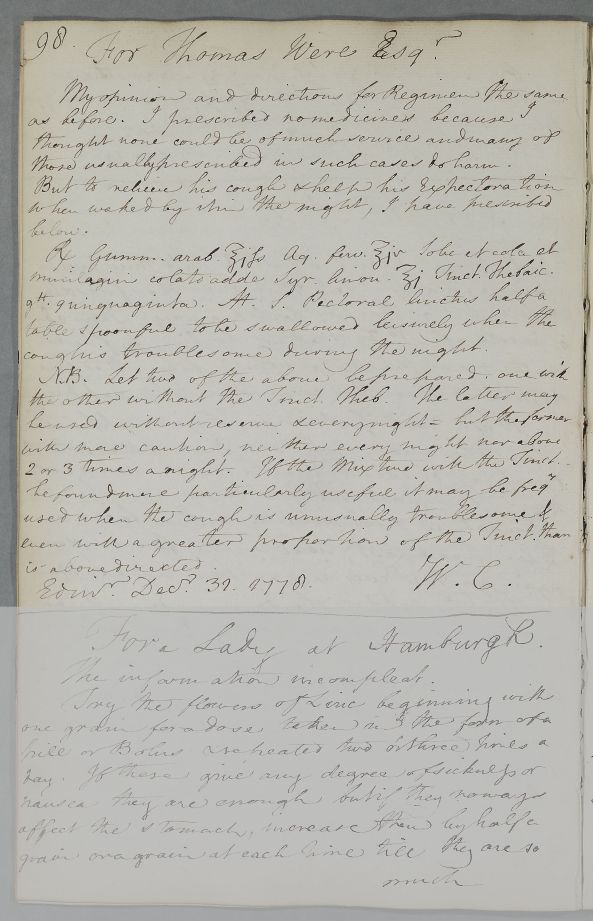 98.
For Thomas Were Esqr.
My opinion and directions for Regimen the same
as before. I prescribed no medicines because I
thought none could be of much service and many of
those usually prescribed in such cases do harm.
But to relieve his cough & help his Expectoration
when waked by it in the night, I have prescribed
below.
℞ Gumm. arab. ʒjſs Aq. ferv. ʒjv Solve et cola et
mucilagin colato adde Syr. limon. ʒj Tinct. Thebaic.
gtt. quinquaginta. M. S. Pectoral linctus half a
table spoonful to be swallowed leisurely when the
cough is troublesome during the night.
N.B. Let two of the above be prepared. one with
the other without the Tinct. Theb. The latter may
be used without reserve & every night = but the former
with more caution, neither every night nor above
2 or 3 times a night. If the Mixture with the Tinct.
be found more particularly useful it may be freqy
used when the cough is unusually troublesome &
even with a greater proportion of the Tinct. than
is above directed.
Edinr. Decr. 31. 1778. W. C.
For a Lady at Hamburgh.
The information incompleat.
Try the flowers of Zinc beginning with
one grain for a dose taken in the form of a
pill or Bolus & repeated two or three times a
day. If these give any degree of sickness or
nausea they are enough but if they noways
affect the stomach, increase them by half a
grain or a grain at each time till they are so
much